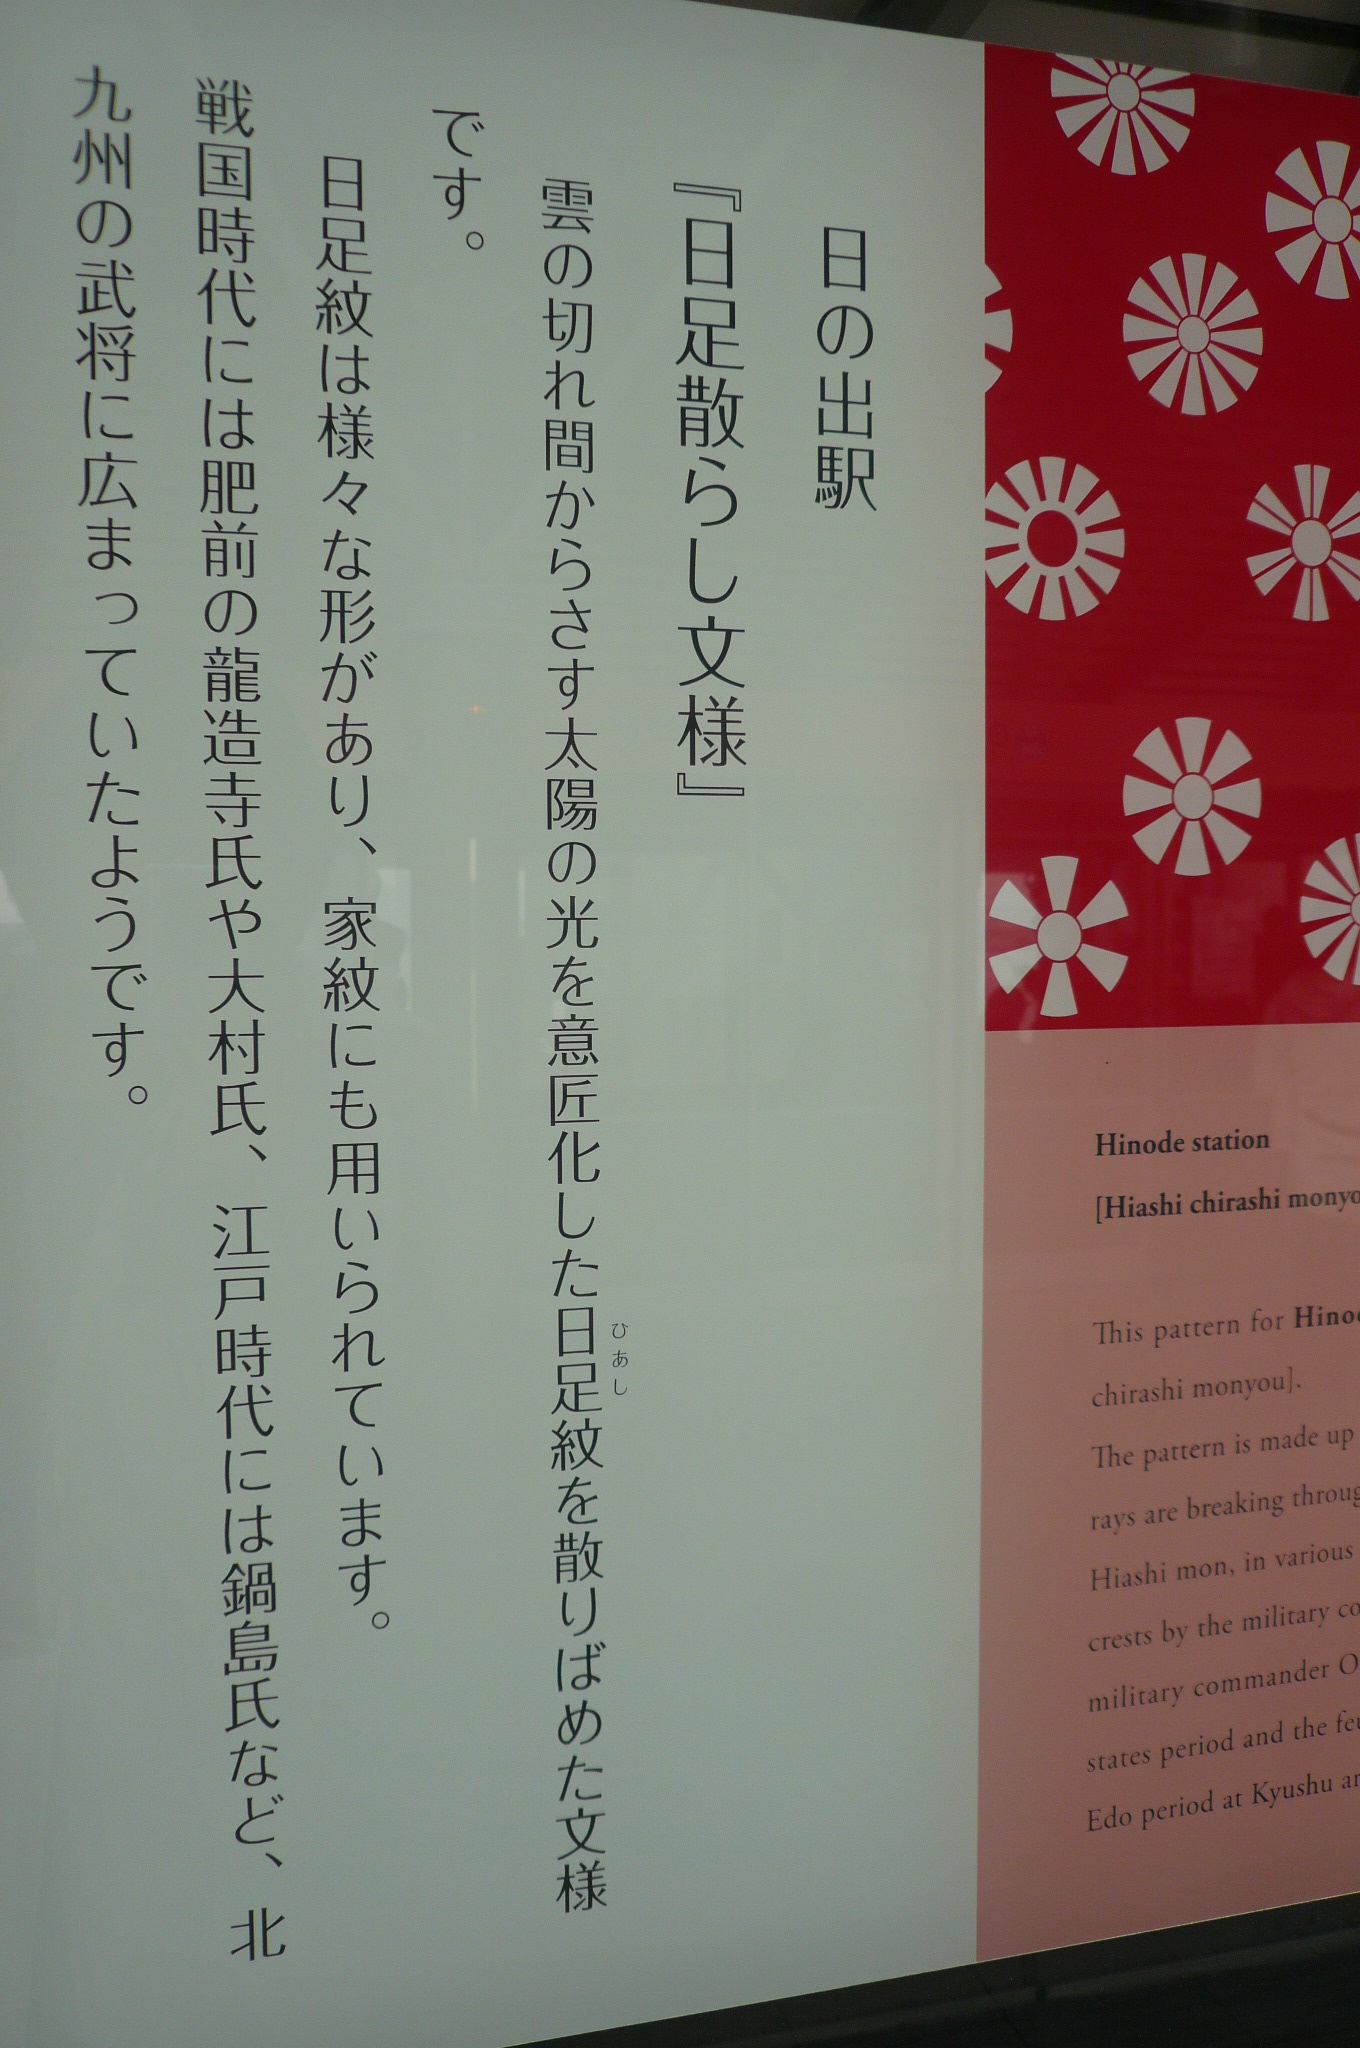 日の出駅
『日足散らし文様』
雲の切れ間からさす太陽の光を意匠化した日足紋を散りばめた文様
ひあし
です。
日足紋は様々な形があり、家紋にも用いられています。
戦国時代には肥前の龍造寺氏や大村氏、江戸時代には鍋島氏など、北
九州の武将に広まっていたようです。
Hinode station
[Hiashi chirashi
This pattern for
chirashi monyou].
The pattern is made up
rays are breaking
Hiashi mon, in various
crests by the military
military commander
states period and the
Edo period at Kyushu